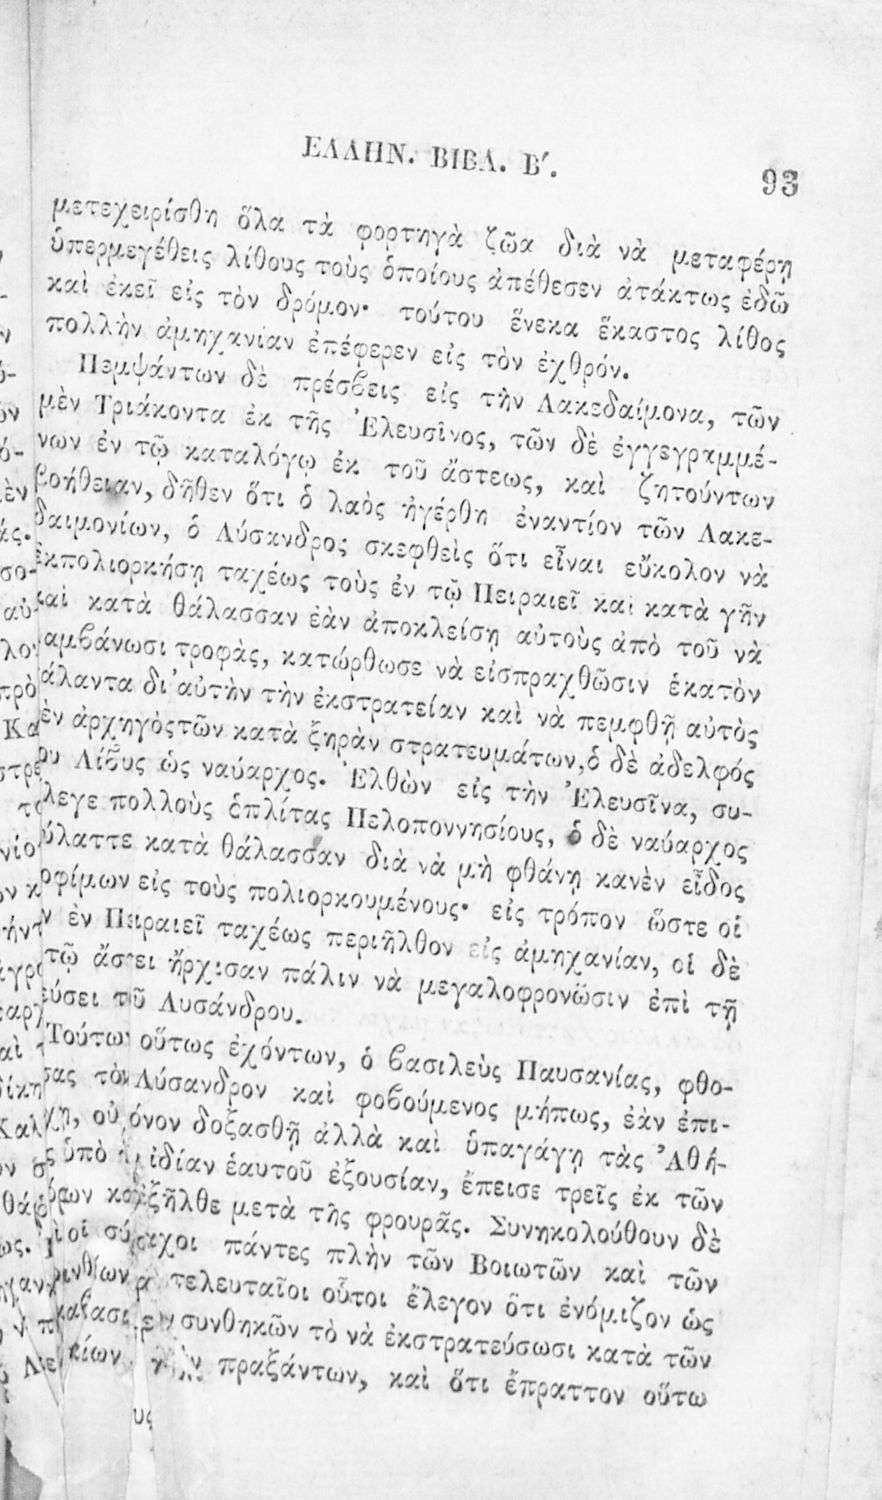 ΕΛΛΗΝ. ΒΙΒΛ. Β΄.
93
μετεχειρίσθη ὅλα τὰ φορτηγὰ ζῶα διὰ νὰ μεταφέρῃ
ὑπερμεγέθεις λίθους τοὺς ὁποίους ἀπέθεσεν ἀτάκτως ἐδῶ
καὶ ἐκεῖ εἰς τὸν δρόμον· τούτου ἕνεκα ἕκαστος λίθος
πολλὴν ἀμηχανίαν ἐπέφερεν εἰς τὸν ἐχθρόν.
Πεμψάντων δὲ πρέσβεις εἰς τὴν Λακεδαίμονα, τῶν
μὲν Τριάκοντα ἐκ τῆς Ἐλευσῖνος, τῶν δὲ ἐγγεγραμμέ-
νων ἐν τῷ καταλόγῳ ἐκ τοῦ ἄστεως, καὶ ζητούντων
βοήθειαν, δῆθεν ὅτι ὁ λαὸς ἠγέρθη ἐναντίον τῶν Λακε-
δαιμονίων, ὁ Λύσανδρος σκεφθεὶς ὅτι εἶναι εὔκολον νὰ
ἐκπολιορκήσῃ ταχέως τοὺς ἐν τῷ Πειραιεῖ καὶ κατὰ γῆν
καὶ κατὰ θάλασσαν ἐὰν ἀποκλείσῃ αὐτοὺς ἀπὸ τοῦ νὰ
αμβάνωσι τροφὰς, κατώρθωσε νὰ εἰσπραχθῶσιν ἑκατὸν
άλαντα δι' αὐτὴν τὴν ἐκστρατείαν καὶ νὰ πεμφθῇ αὐτὸς
ὲν ἀρχηγὸς τῶν κατὰ ξηρὰν στρατευμάτων, ὁ δὲ ἀδελφός
ου Λίβυς ὡς ναύαρχος. Ἐλθὼν εἰς τὴν Ἐλευσῖνα, συ-
λεγε πολλοὺς ὁπλίτας Πελοποννησίους, ὁ δὲ ναύαρχος
ύλαττε κατὰ θάλασσαν διὰ νὰ μὴ φθάνῃ κανὲν εἶδος
οφίμων εἰς τοὺς πολιορκουμένους· εἰς τρόπον ὥστε οἱ
ν ἐν Πειραιεῖ ταχέως περιῆλθον εἰς ἀμηχανίαν, οἱ δὲ
τῷ ἄστει ἤρχισαν πάλιν νὰ μεγαλοφρονῶσιν ἐπὶ τῇ
εύσει τοῦ Λυσάνδρου.
Τούτων οὕτως ἐχόντων, ὁ βασιλεὺς Παυσανίας, φθο-
σας τὸν Λύσανδρον καὶ φοβούμενος μήπως, ἐὰν ἐπι-
χῃ, οὐ όνον δοξασθῇ ἀλλὰ καὶ ὑπαγάγῃ τὰς Ἀθή-
ς ὑπὸ ἰδίαν ἑαυτοῦ ἐξουσίαν, ἔπεισε τρεῖς ἐκ τῶν
όρων κα ἐξῆλθε μετὰ τῆς φρουρᾶς. Συνηκολούθουν δὲ
οἱ σύ αχοι πάντες πλὴν τῶν Βοιωτῶν καὶ τῶν
ρινθίων τελευταῖοι οὗτοι ἔλεγον ὅτι ἐνόμιζον ὡς
άβασι συνθηκῶν τὸ νὰ ἐκστρατεύσωσι κατὰ τῶν
πραξάντων, καὶ ὅτι ἔπραττον οὕτω